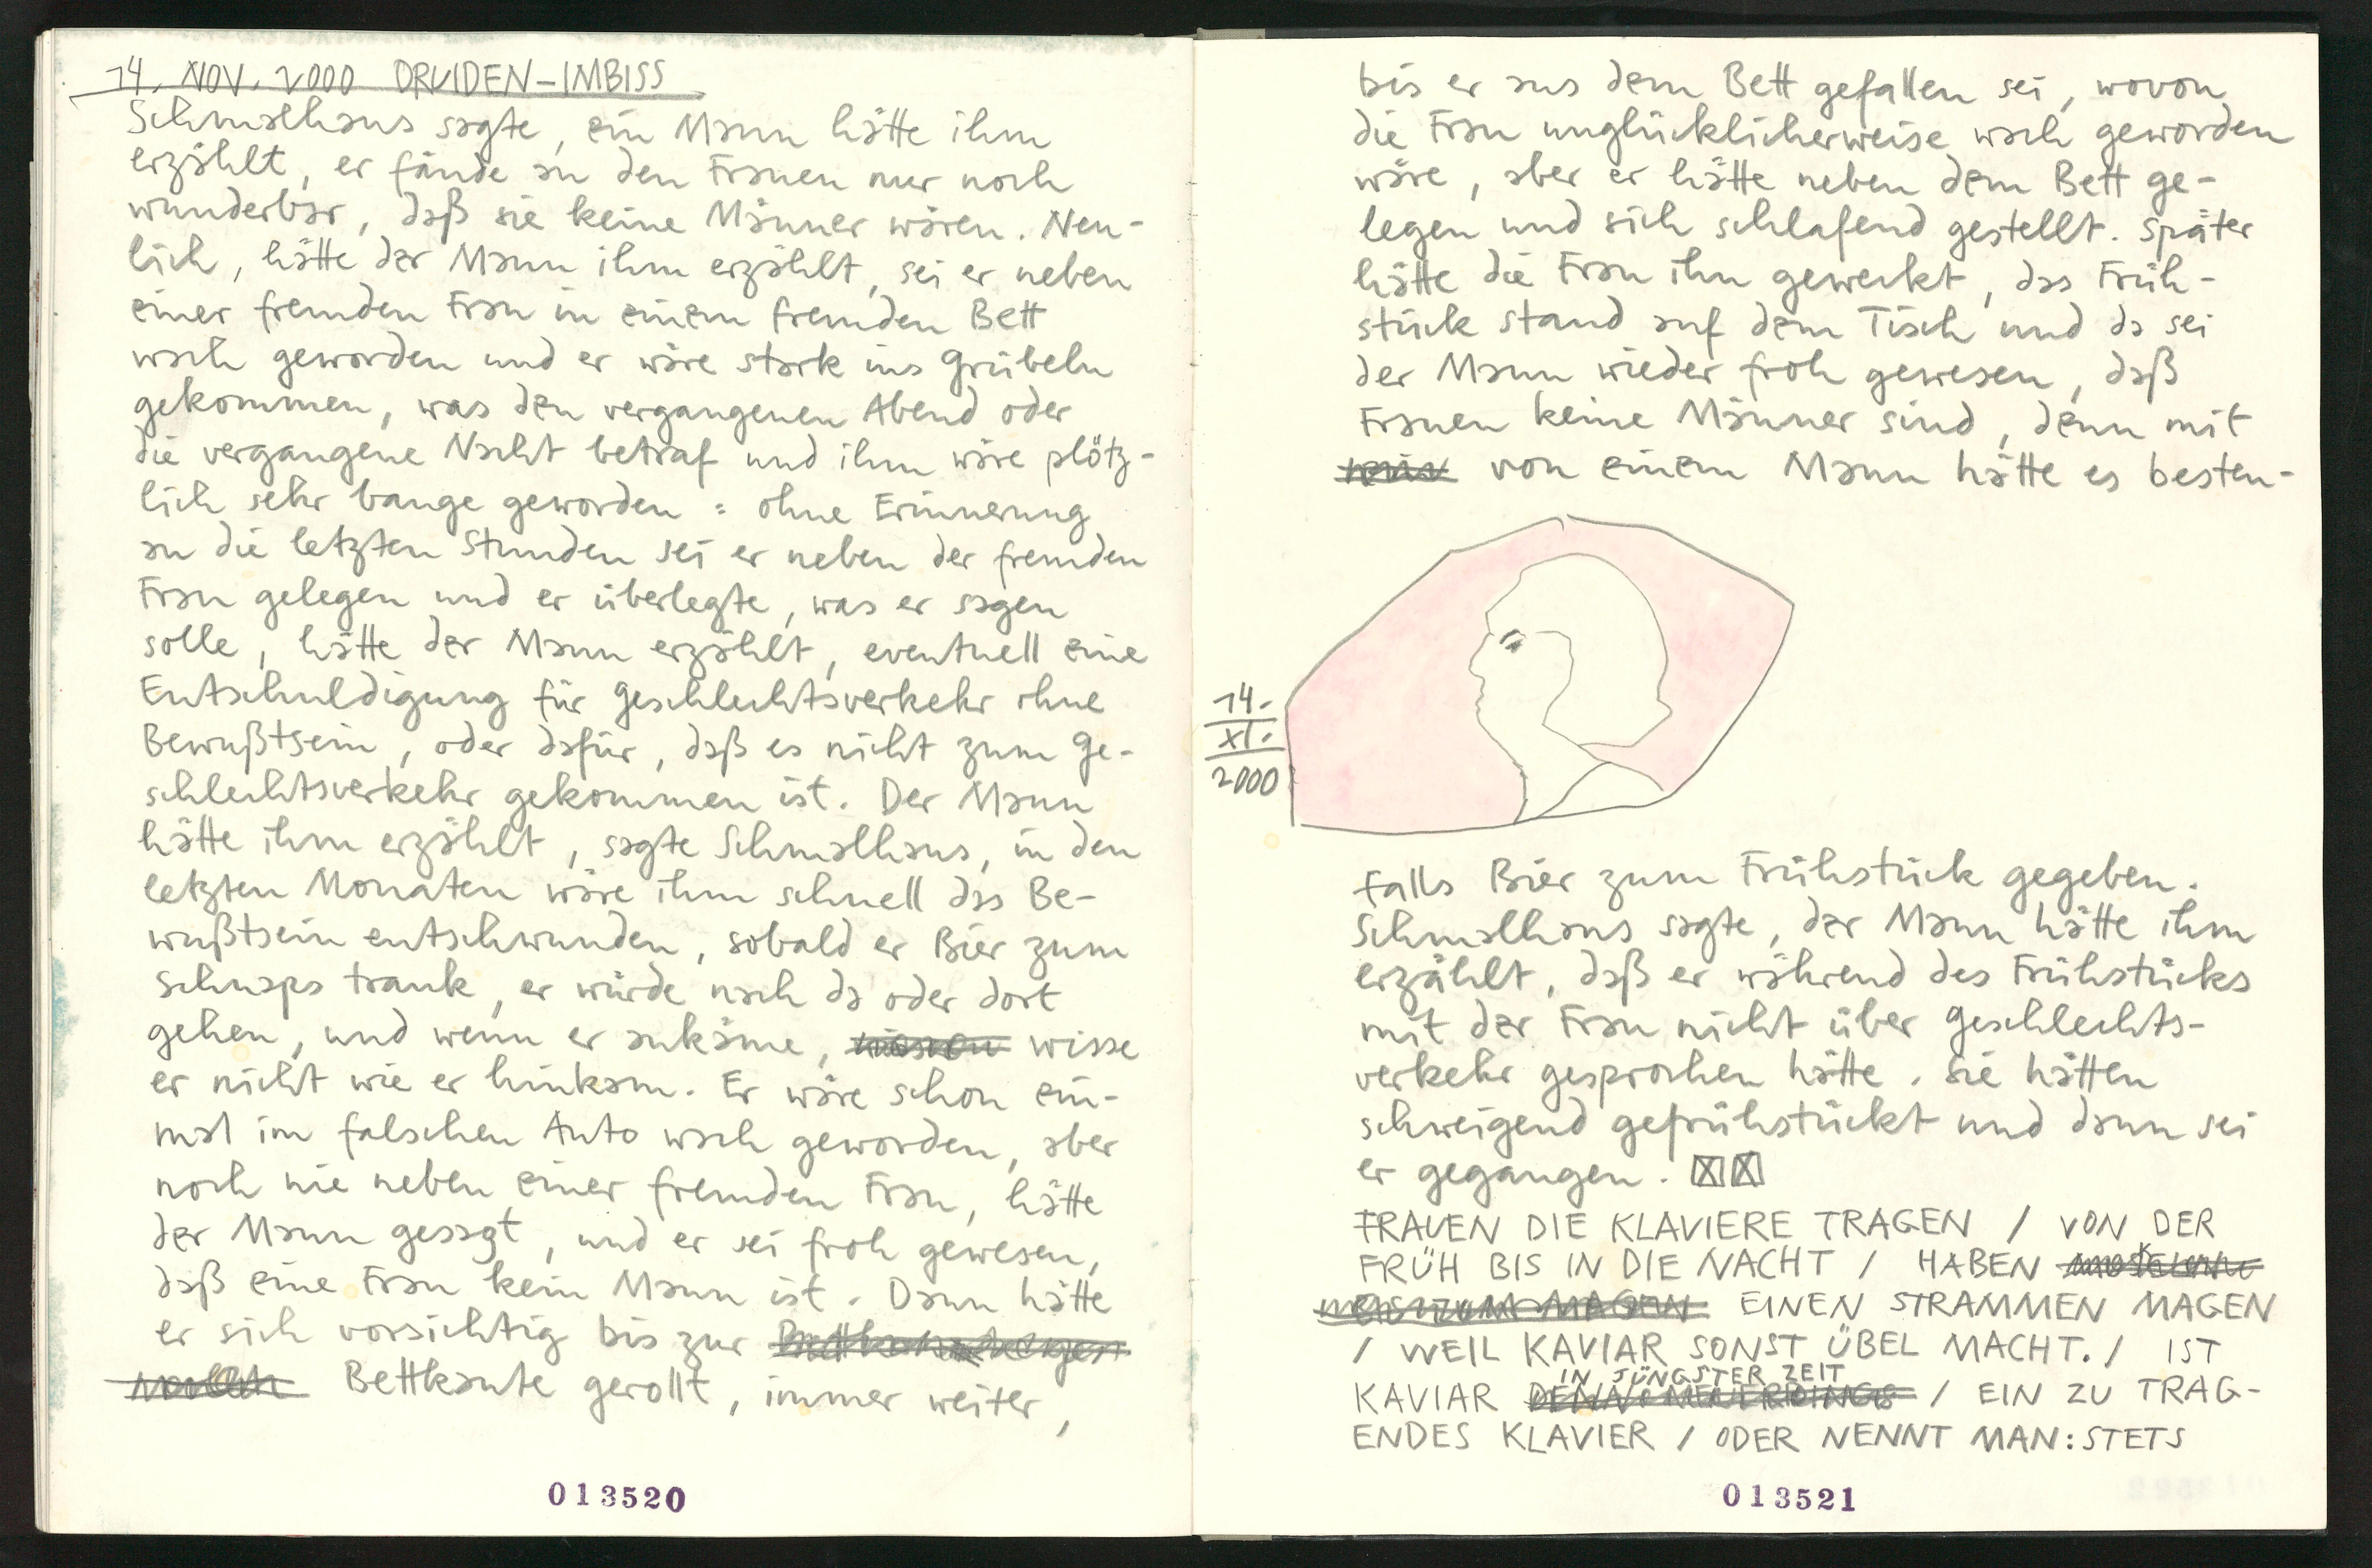 14. NOV. 2000 DRUIDEN-IMBISS
Schmalhans sagte, ein Mann hätte ihm
erzählt, er fände an den Frauen nur noch
wunderbar, daß sie keine Männer wären. Neu-
lich, hätte der Mann ihm erzählt, sei er neben
einer fremden Frau in einem fremden Bett
wach geworden und er wäre stark ins Grübeln
gekommen, was den vergangenen Abend oder
die vergangene Nacht betraf und ihm wäre plötz-
lich sehr bange geworden: ohne Erinnerung
an die letzten Stunden sei er neben der fremden
Frau gelegen und er überlegte, was er sagen
solle, hätte der Mann erzählt, eventuell eine
Entschuldigung für Geschlechtsverkehr ohne
Bewußtsein, oder dafür, daß es nicht zum Ge-
schlechtsverkehr gekommen ist. Der Mann
hätte ihm erzählt, sagte Schmalhans, in den
letzten Monaten wäre ihm schnell das Be-
wußtsein entschwunden, sobald er Bier zum
Schnaps trank, er würde nach da oder dort
gehen, und wenn er ankäme, wisse
er nicht wie er hinkam. Er wäre schon ein-
mal im falschen Auto wach geworden, aber
noch nie neben einer fremden Frau, hätte
der Mann gesagt, und er sei froh gewesen,
daß eine Frau kein Mann ist. Dann hätte
er sich vorsichtig bis zur
Bettkante gerollt, immer weiter,
013520
bis er aus dem Bett gefallen sei, wovon
die Frau unglücklicherweise wach geworden
wäre, aber er hätte neben dem Bett ge-
legen und sich schlafend gestellt. Später
hätte die Frau ihn geweckt, das Früh-
stück stand auf dem Tisch und da sei
der Mann wieder froh gewesen, daß
Frauen keine Männer sind, denn mit
von einem Mann hätte es besten-
14.
XI.
2000
falls Bier zum Frühstück gegeben.
Schmalhans sagte, der Mann hätte ihm
erzählt, daß er während des Frühstücks
mit der Frau nicht über Geschlechts-
verkehr gesprochen hätte. Sie hätten
schweigend gefrühstückt und dann sei
er gegangen.
FRAUEN DIE KLAVIERE TRAGEN / VON DER
FRÜH BIS IN DIE NACHT / HABEN
EINEN STRAMMEN MAGEN
/ WEIL KAVIAR SONST ÜBEL MACHT. / IST
IN JÜNGSTER ZEIT
KAVIAR DENN NEUERDINGS / EIN ZU TRAG-
ENDES KLAVIER / ODER NENNT MAN: STETS
013521